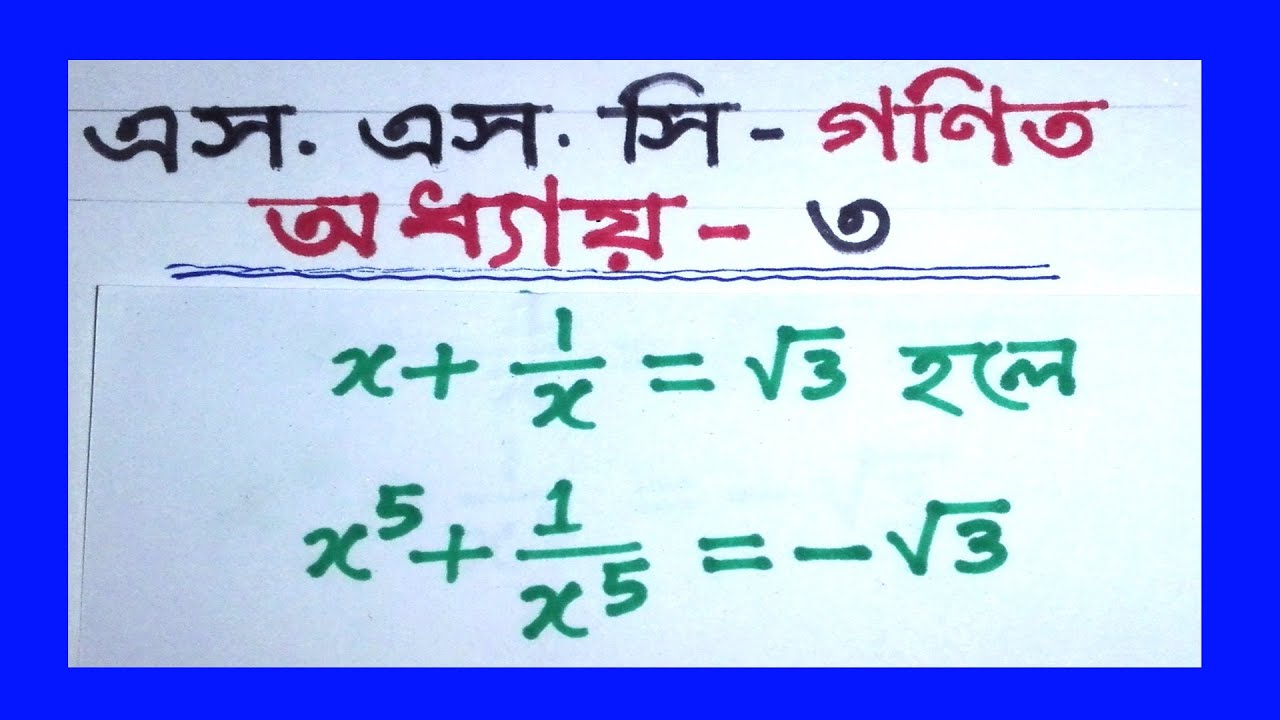 এস. এস. সি - গণিত
অধ্যায় - ৩
x + 1/x = √3 হলে
x⁵ + 1/x⁵ = -√3